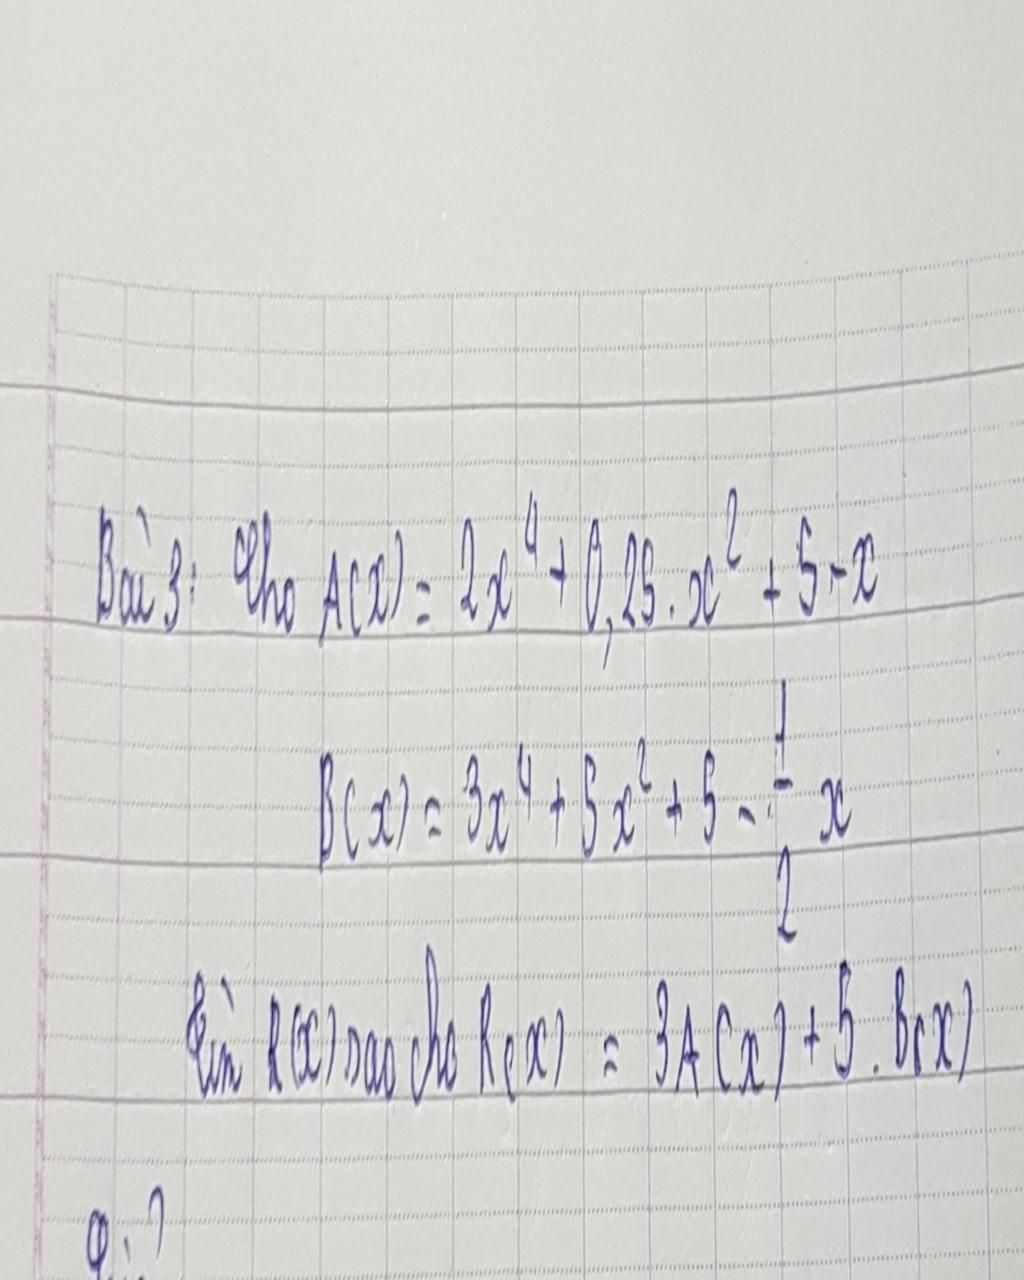 Bài 3: Cho A(x) = 2x⁴ + 0,25.x² + 5 - x
B(x) = 3x⁴ + 5x² + 5 - 1/2 x
Tìm R(x) sao cho R(x) = 3A(x) + 5.B(x)